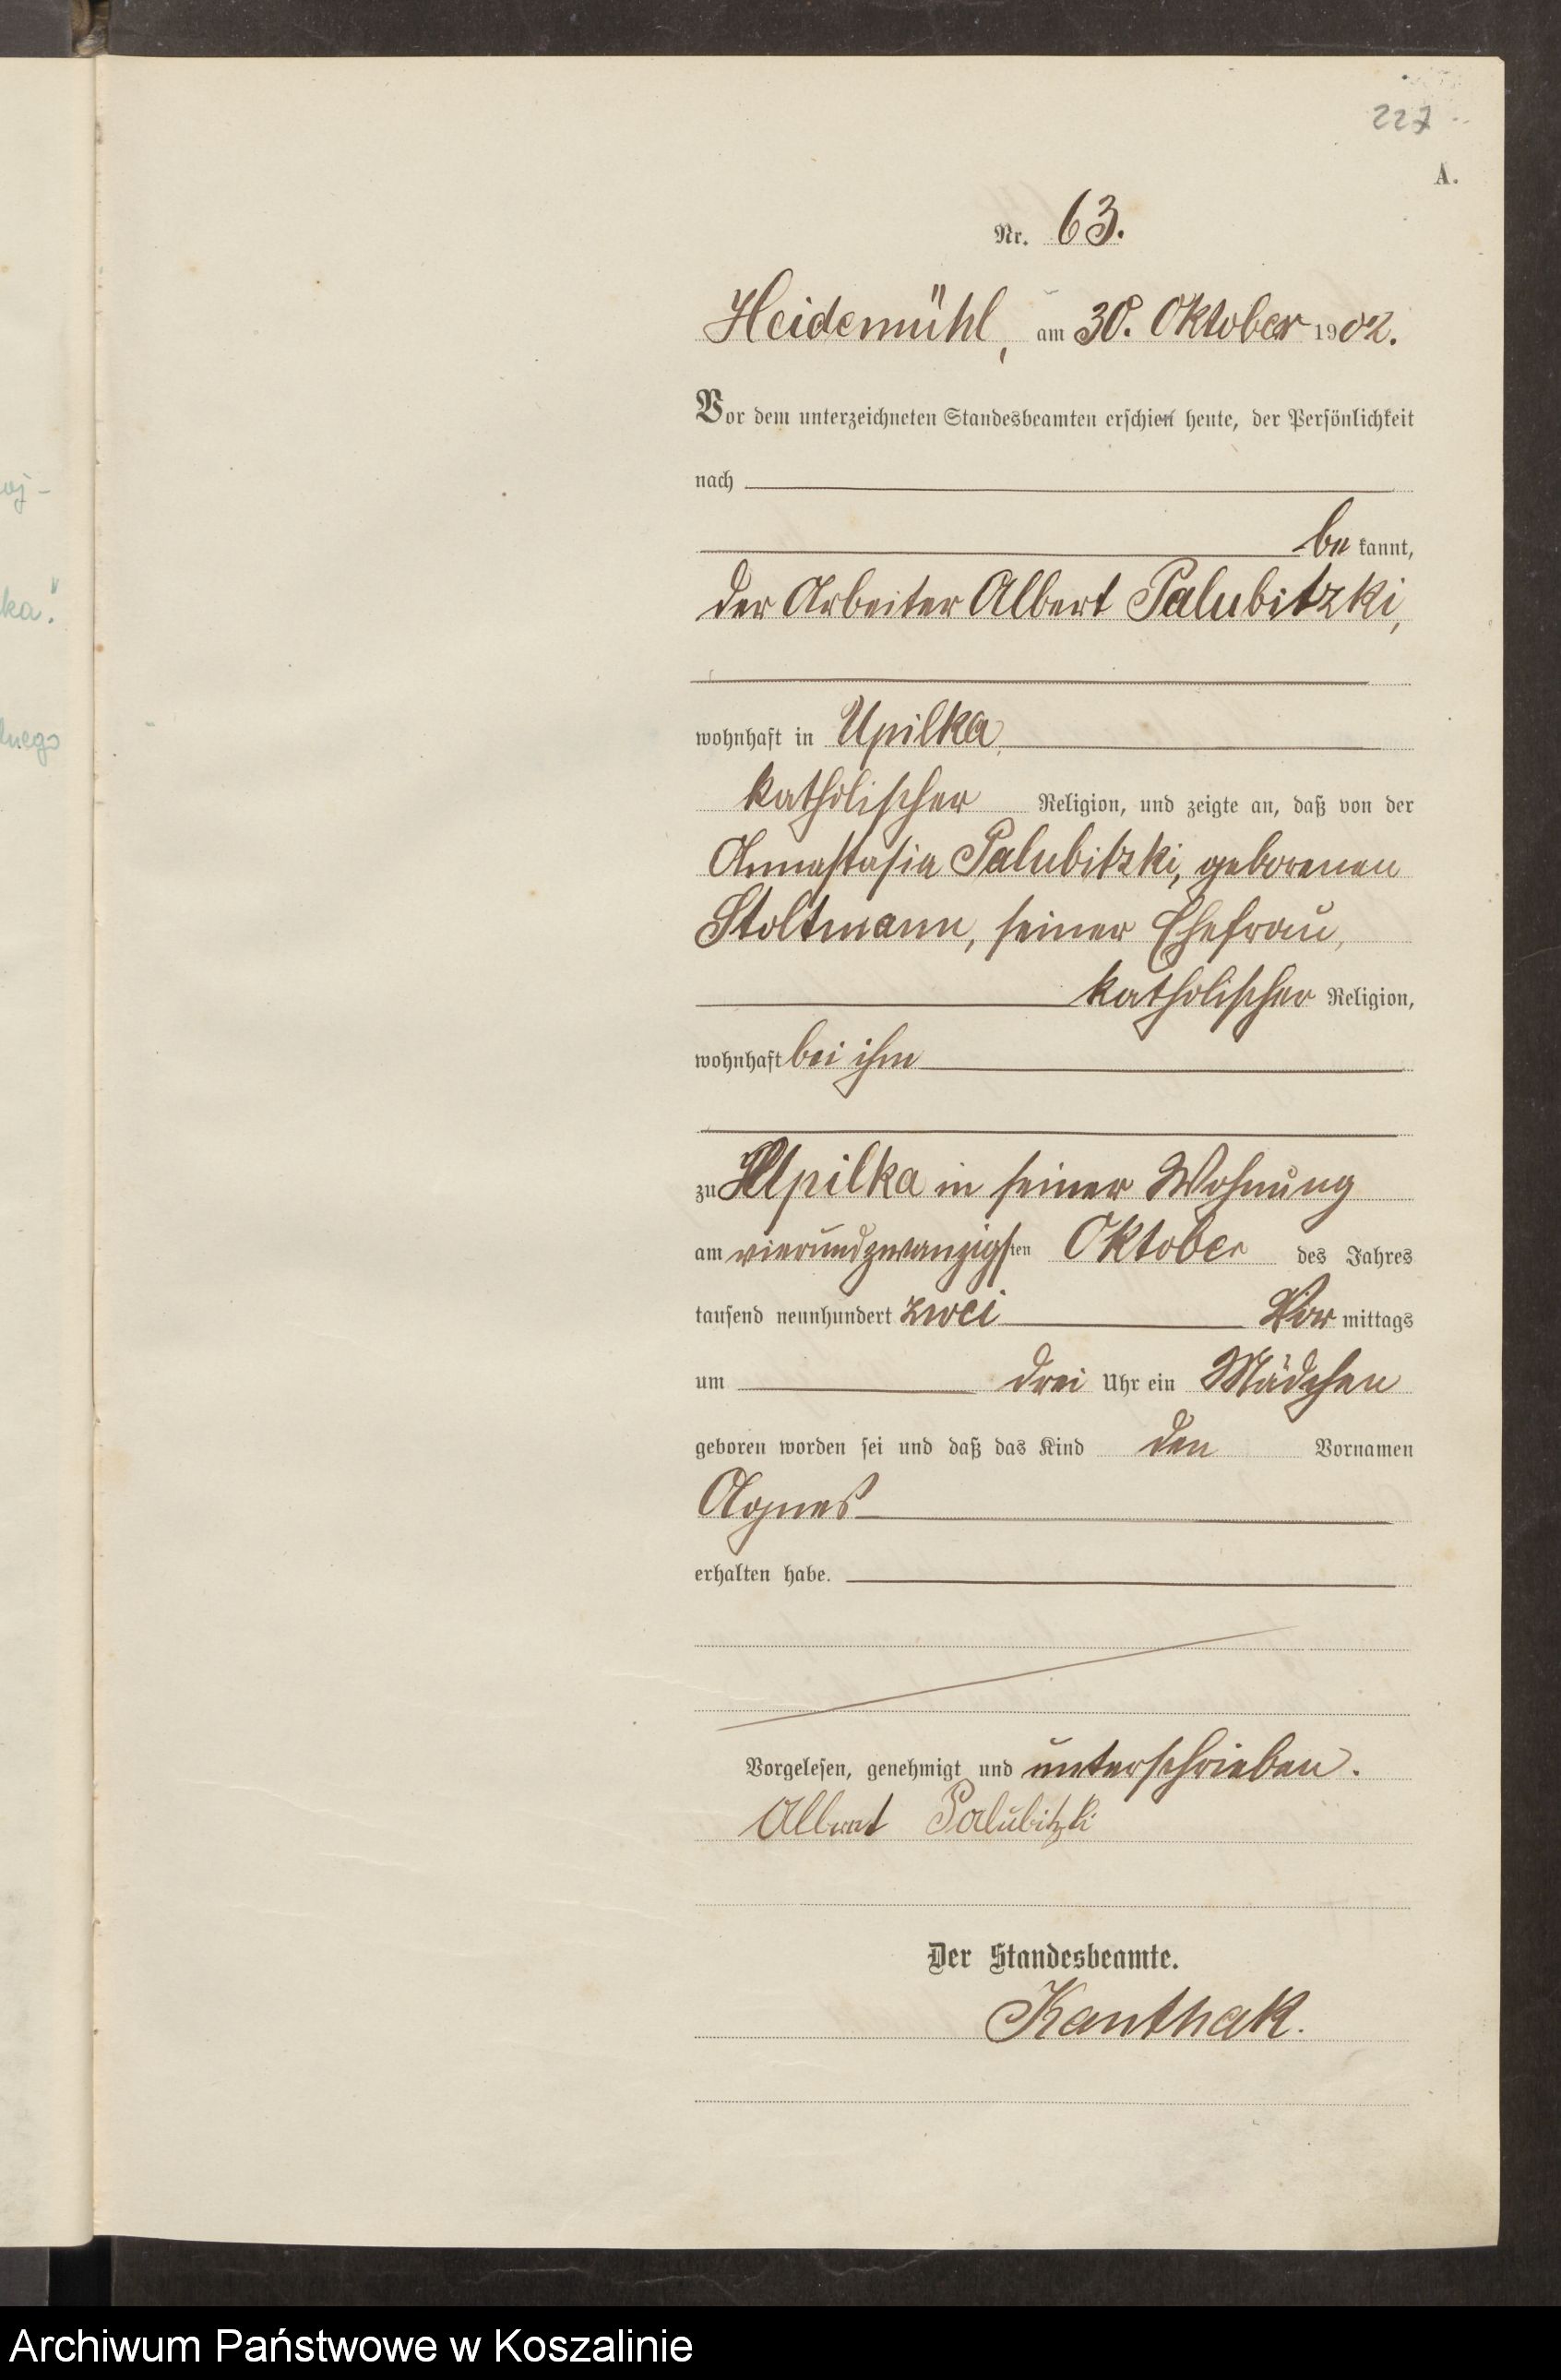 oj-
ka."
lnego
227
A.
Nr. 63.
Heidemühl, am 30. Oktober 1902.
Vor dem unterzeichneten Standesbeamten erschien heute, der Persönlichkeit
nach
be kannt,
der Arbeiter Albert Palubitzki,
wohnhaft in Upilka
katholischer Religion, und zeigte an, daß von der
Annastasia Palubitzki, geborenen
Stoltmann, seiner Ehefrau,
katholischer Religion,
wohnhaft bei ihm
zu Upilka in seiner Wohnung
am vierundzwanzigsten Oktober des Jahres
tausend neunhundert zwei Vor mittags
um drei Uhr ein Mädchen
geboren worden sei und daß das Kind den Vornamen
Agnes
erhalten habe.
Vorgelesen, genehmigt und unterschrieben.
Albert Palubitzki
Der Standesbeamte.
Kanthak.
Archiwum Państwowe w Koszalinie